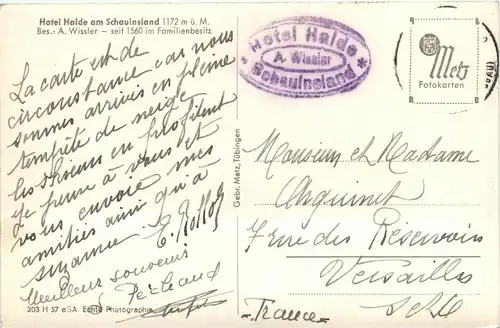 Hotel Halde am Schauinsland 1172 m ü. M.
Bes.: A. Wissler – seit 1560 im Familienbesitz
La carte est de
circonstance car nous
sommes arrivés en pleine
tempête de neige
les skieurs en profitent
je pense à vous et
vous envoie mes
amitiés ainsi qu'à
suzanne E. Rolloz
Meilleur souvenir
203 H 57 eSA Echte Photographie
Gebr. Metz, Tübingen
* Hotel Halde *
A. Wissler
Schauinsland
Metz
Fotokarten
Monsieur et Madame
Arguinet
7 rue des Réservoirs
Versailles
S et O
France